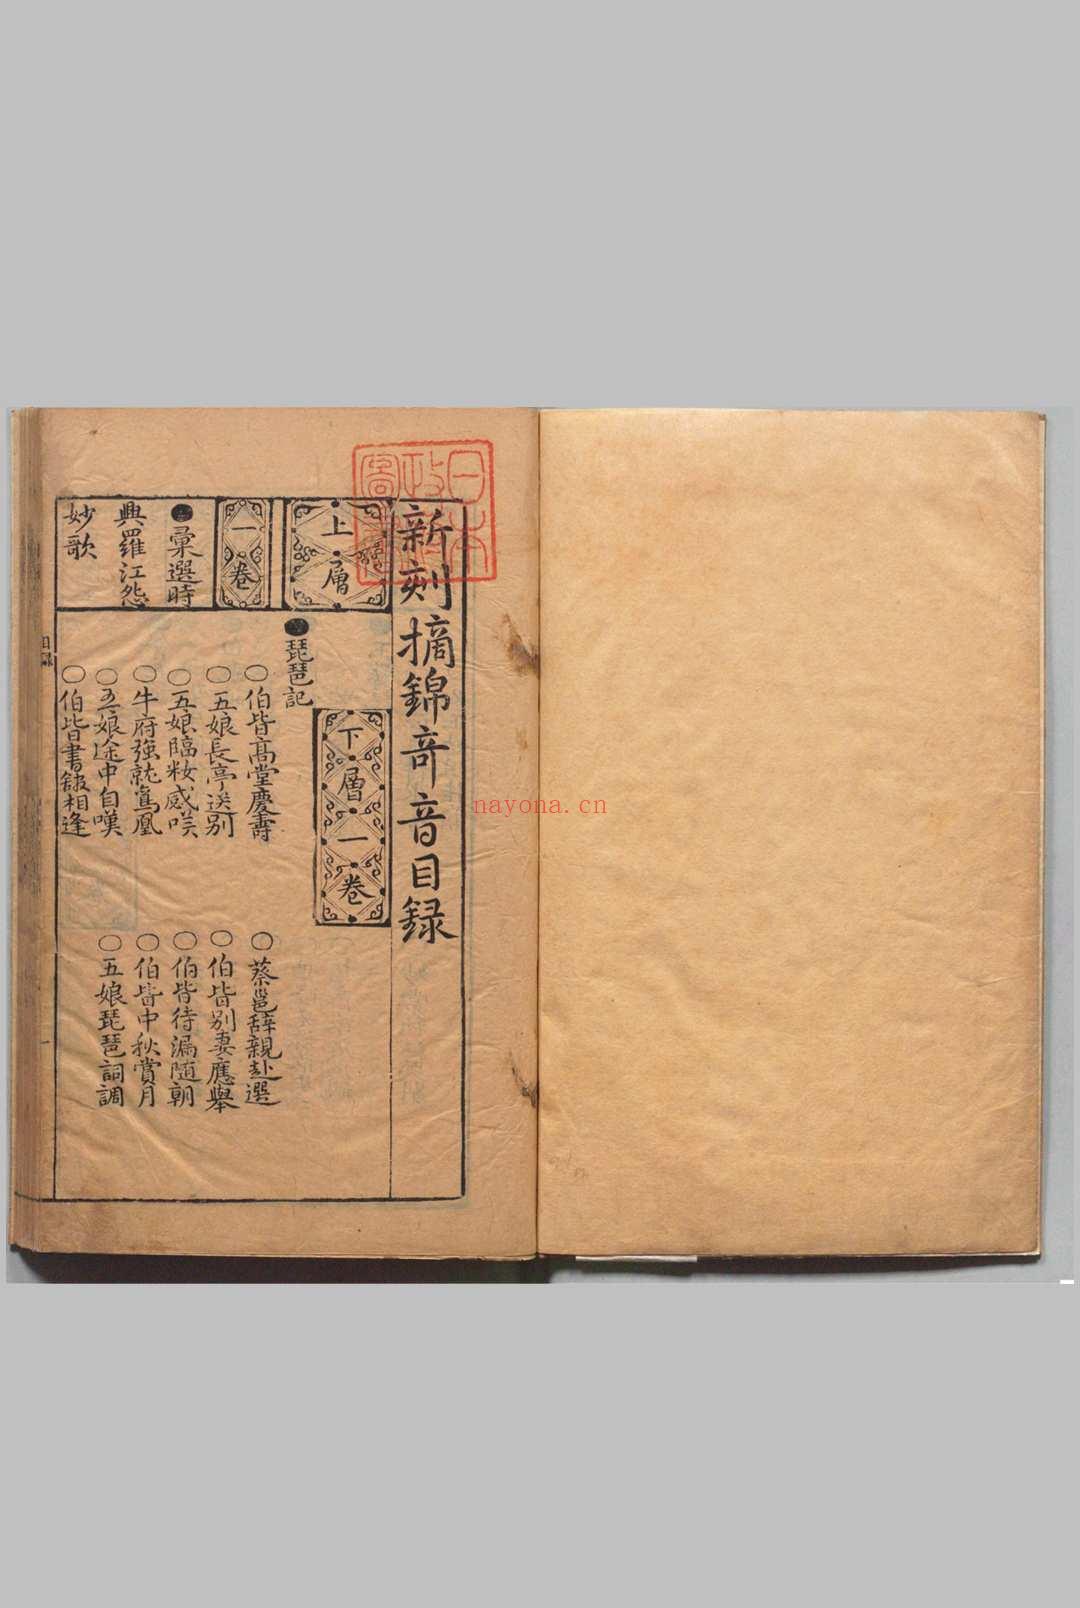 新刻摘錦奇音目録
上層
一卷
●彙選時
興羅江怨
妙歌
下層一卷
●琵琶記
○伯皆高堂慶壽
○蔡邕辭親赴選
○五娘長亭送别
○伯皆别妻應舉
○五娘臨粧感嘆
○伯皆待漏随朝
○牛府強就鸞凰
○伯皆中秋賞月
○五娘途中自嘆
○五娘琵琶詞調
○伯皆書舘相逢
目録
一
日本
政府
圖書
nayona.cn